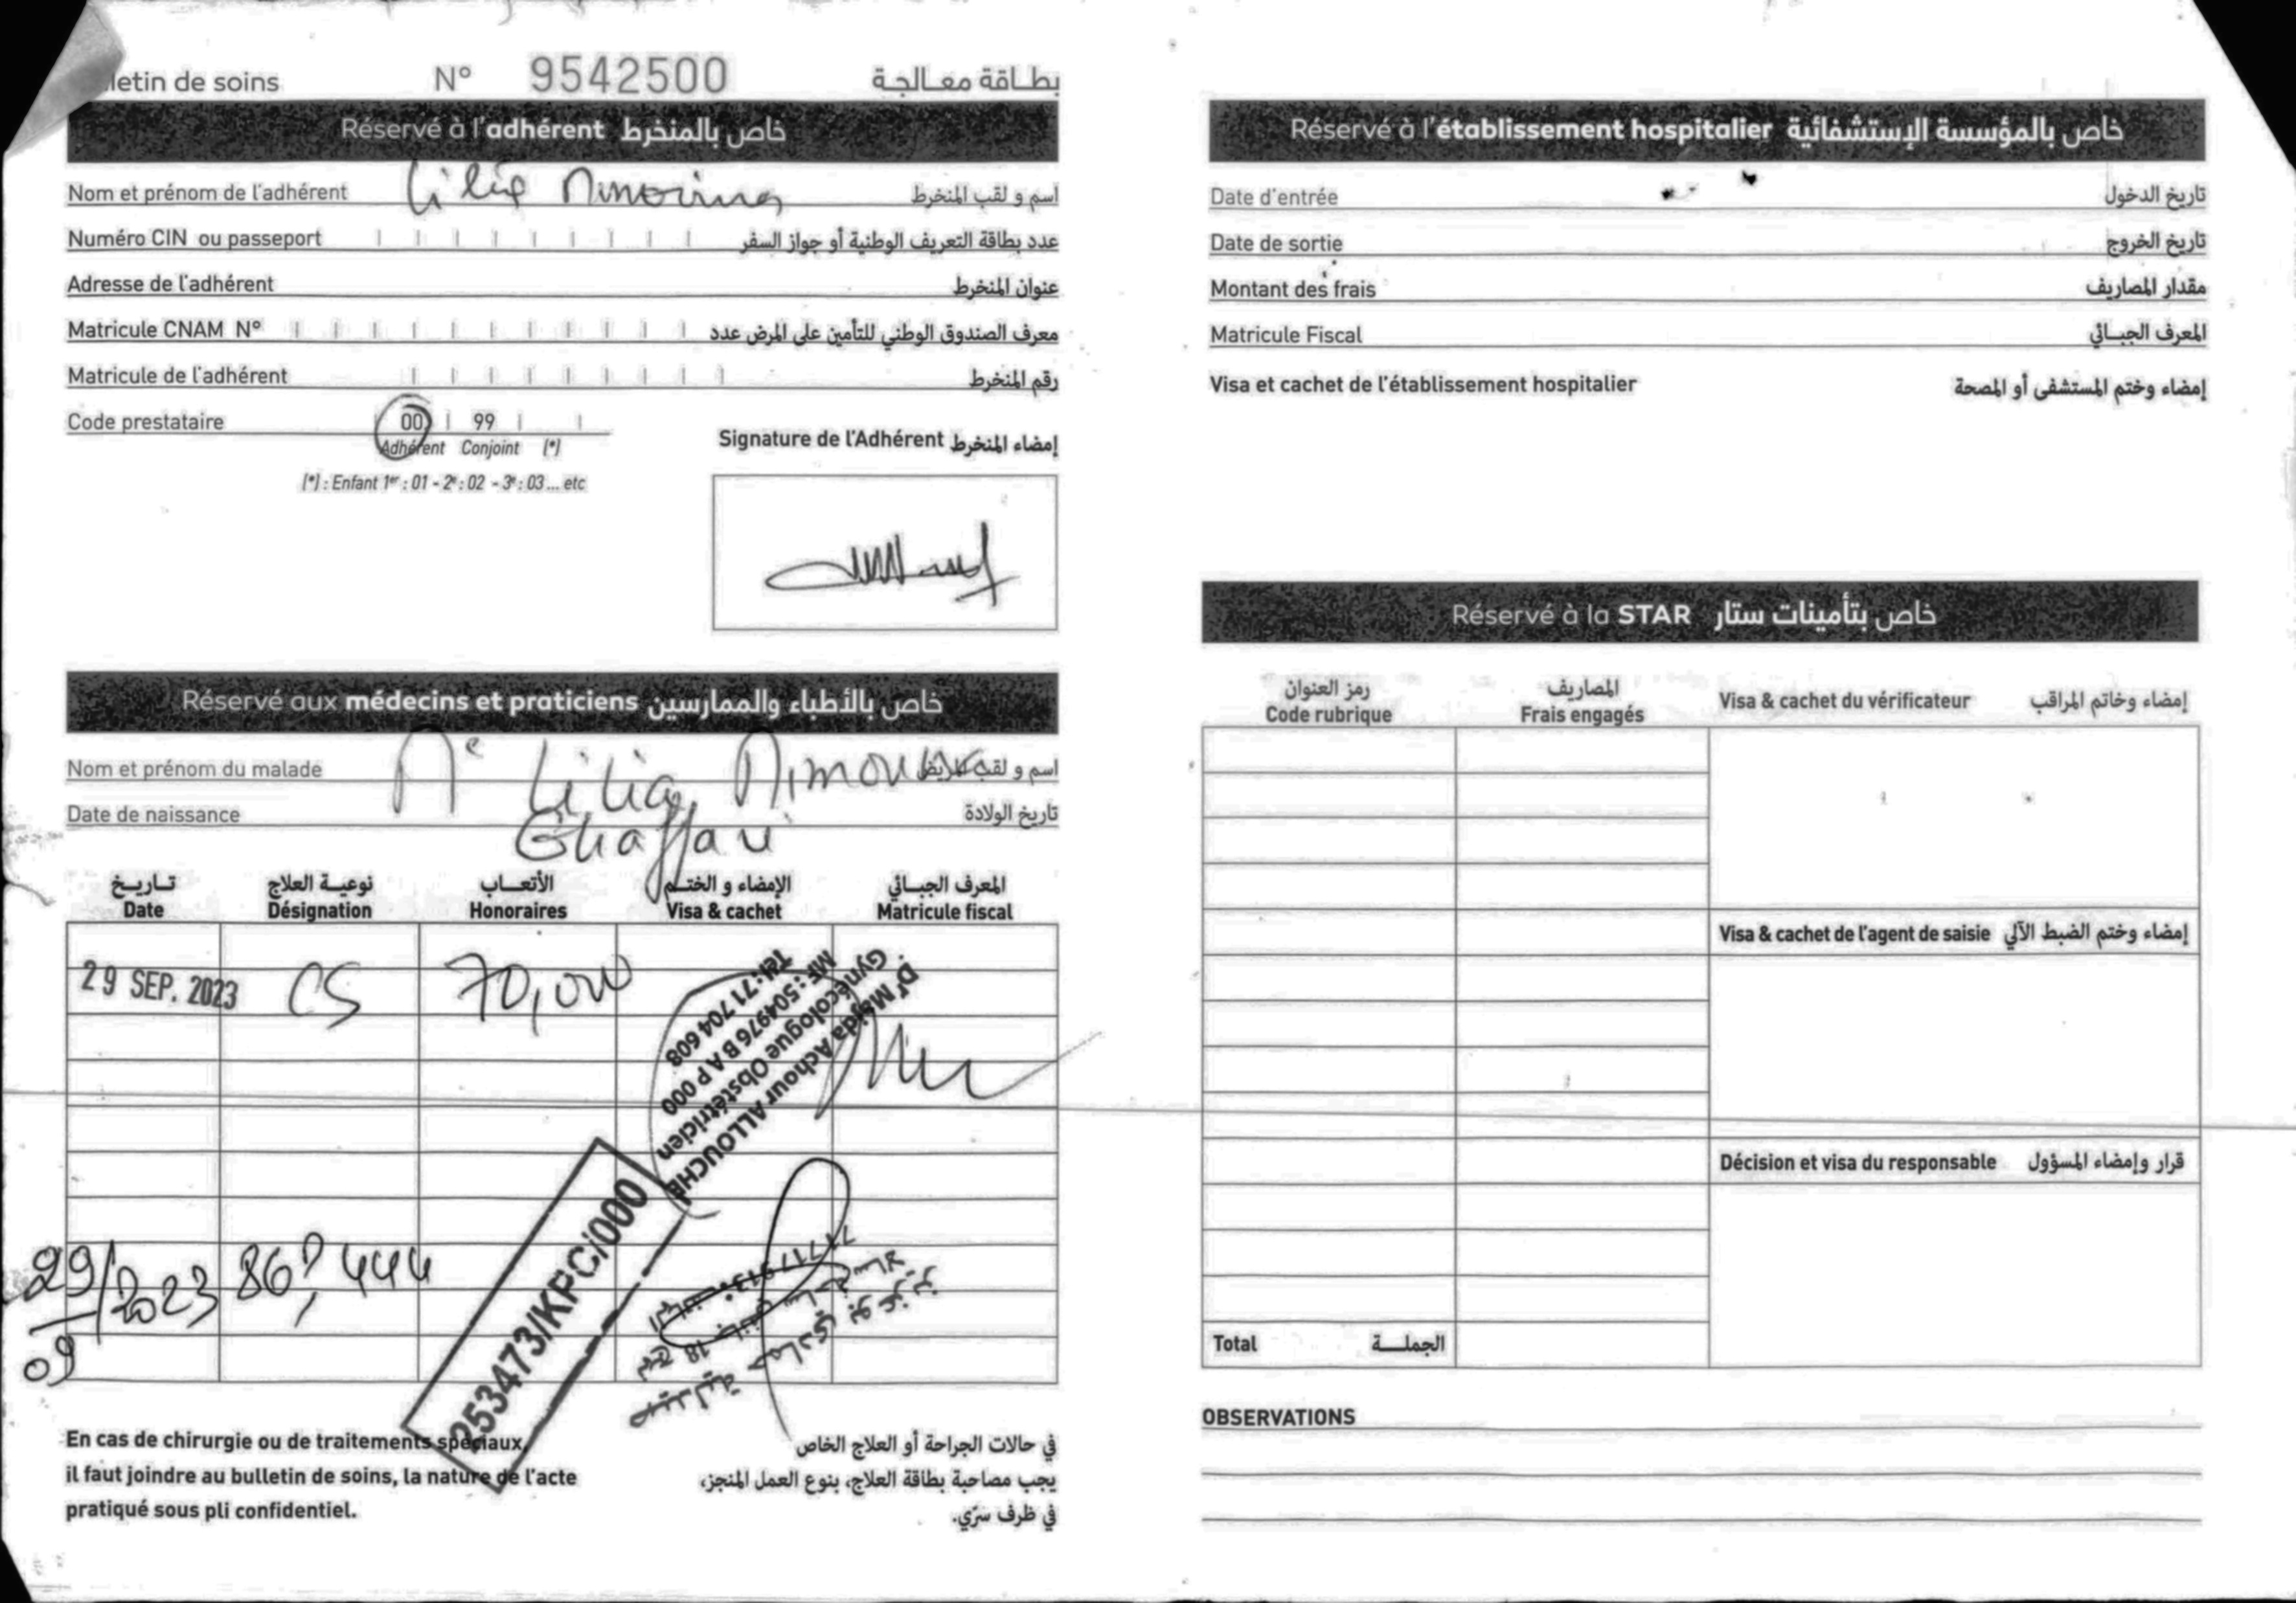 letin de soins N° 9542500 بطاقة معالجة
Réservé à l'adhérent خاص بالمنخرط
Nom et prénom de l'adhérent Lilia Mimouna اسم و لقب المنخرط
Numéro CIN ou passeport عدد بطاقة التعريف الوطنية أو جواز السفر
Adresse de l'adhérent عنوان المنخرط
Matricule CNAM N° معرف الصندوق الوطني للتأمين على المرض عدد
Matricule de l'adhérent رقم المنخرط
Code prestataire 00 99
Adhérent Conjoint (*)
(*) : Enfant 1er : 01 - 2e : 02 - 3e : 03 ... etc
Signature de l'Adhérent إمضاء المنخرط
Réservé aux médecins et praticiens خاص بالأطباء والممارسين
Nom et prénom du malade Me Lilia Mimouna اسم و لقب المريض
Date de naissance Ghaffari تاريخ الولادة
تاريخ نوعية العلاج الأتعاب الإمضاء و الختم المعرف الجبائي
Date Désignation Honoraires Visa & cachet Matricule fiscal
29 SEP. 2023 CS 70,000
Dr Majida Achour ALLOUCHE
Gynécologue Obstétricien
MF : 504976 B A P 000
Tél : 71 704 608
29/09/2023 86,444
253473/KPC/000
En cas de chirurgie ou de traitements spéciaux,
il faut joindre au bulletin de soins, la nature de l'acte
pratiqué sous pli confidentiel.
في حالات الجراحة أو العلاج الخاص
يجب مصاحبة بطاقة العلاج، بنوع العمل المنجز،
في ظرف سرّي.
Réservé à l'établissement hospitalier خاص بالمؤسسة الإستشفائية
Date d'entrée تاريخ الدخول
Date de sortie تاريخ الخروج
Montant des frais مقدار المصاريف
Matricule Fiscal المعرف الجبائي
Visa et cachet de l'établissement hospitalier إمضاء وختم المستشفى أو المصحة
Réservé à la STAR خاص بتأمينات ستار
رمز العنوان المصاريف
Code rubrique Frais engagés Visa & cachet du vérificateur إمضاء وخاتم المراقب
Visa & cachet de l'agent de saisie إمضاء وختم الضبط الآلي
Décision et visa du responsable قرار وإمضاء المسؤول
Total الجملة
OBSERVATIONS